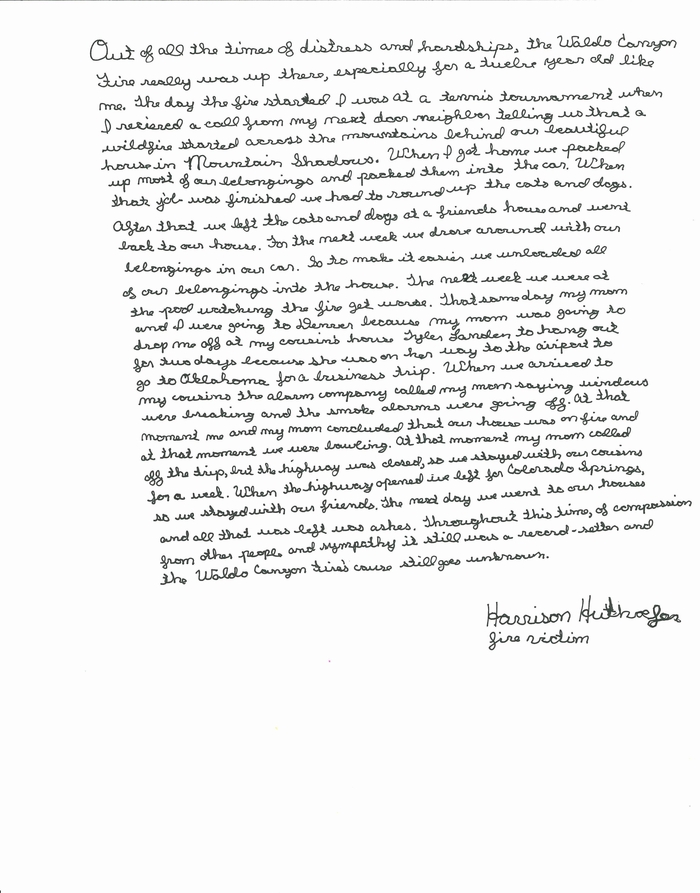 Out of all the times of distress and hardships, the Waldo Canyon
Fire really was up there, especially for a twelve year old like
me. The day the fire started I was at a tennis tournament when
I recieved a call from my next door neighbor telling us that a
wildfire started across the mountains behind our beautiful
house in Mountain Shadows. When I got home we packed
up most of our belongings and packed them into the car. When
that job was finished we had to round up the cats and dogs.
After that we left the cats and dogs at a friends house and went
back to our house. For the next week we drove around with our
belongings in our car. So to make it easier we unloaded all
of our belongings into the house. The next week we were at
the pool watching the fire get worse. That same day my mom
and I were going to Denver because my mom was going to
drop me off at my cousins house Tyler Landen to hang out
for two days because she was on her way to the airport to
go to Oklahoma for a business trip. When we arrived to
my cousins the alarm company called my mom saying windows
were breaking and the smoke alarms were going off. At that
moment me and my mom concluded that our house was on fire and
at that moment we were bawling. At that moment my mom called
off the trip, but the highway was closed, so we stayed with our cousins
for a week. When the highway opened we left for Colorado Springs,
so we stayed with our friends. The next day we went to our houses
and all that was left was ashes. Throughout this time, of compassion
from other people and sympathy it still was a record-setter and
the Waldo Canyon Fire's cause still goes unknown.
Harrison Huthoefer
fire victim